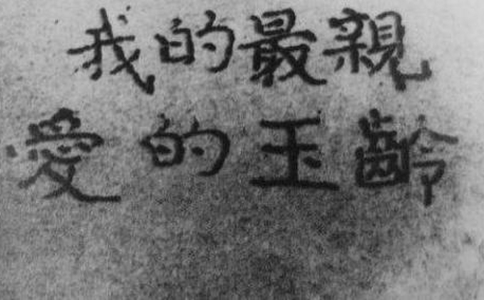 我的最親
愛的玉齡